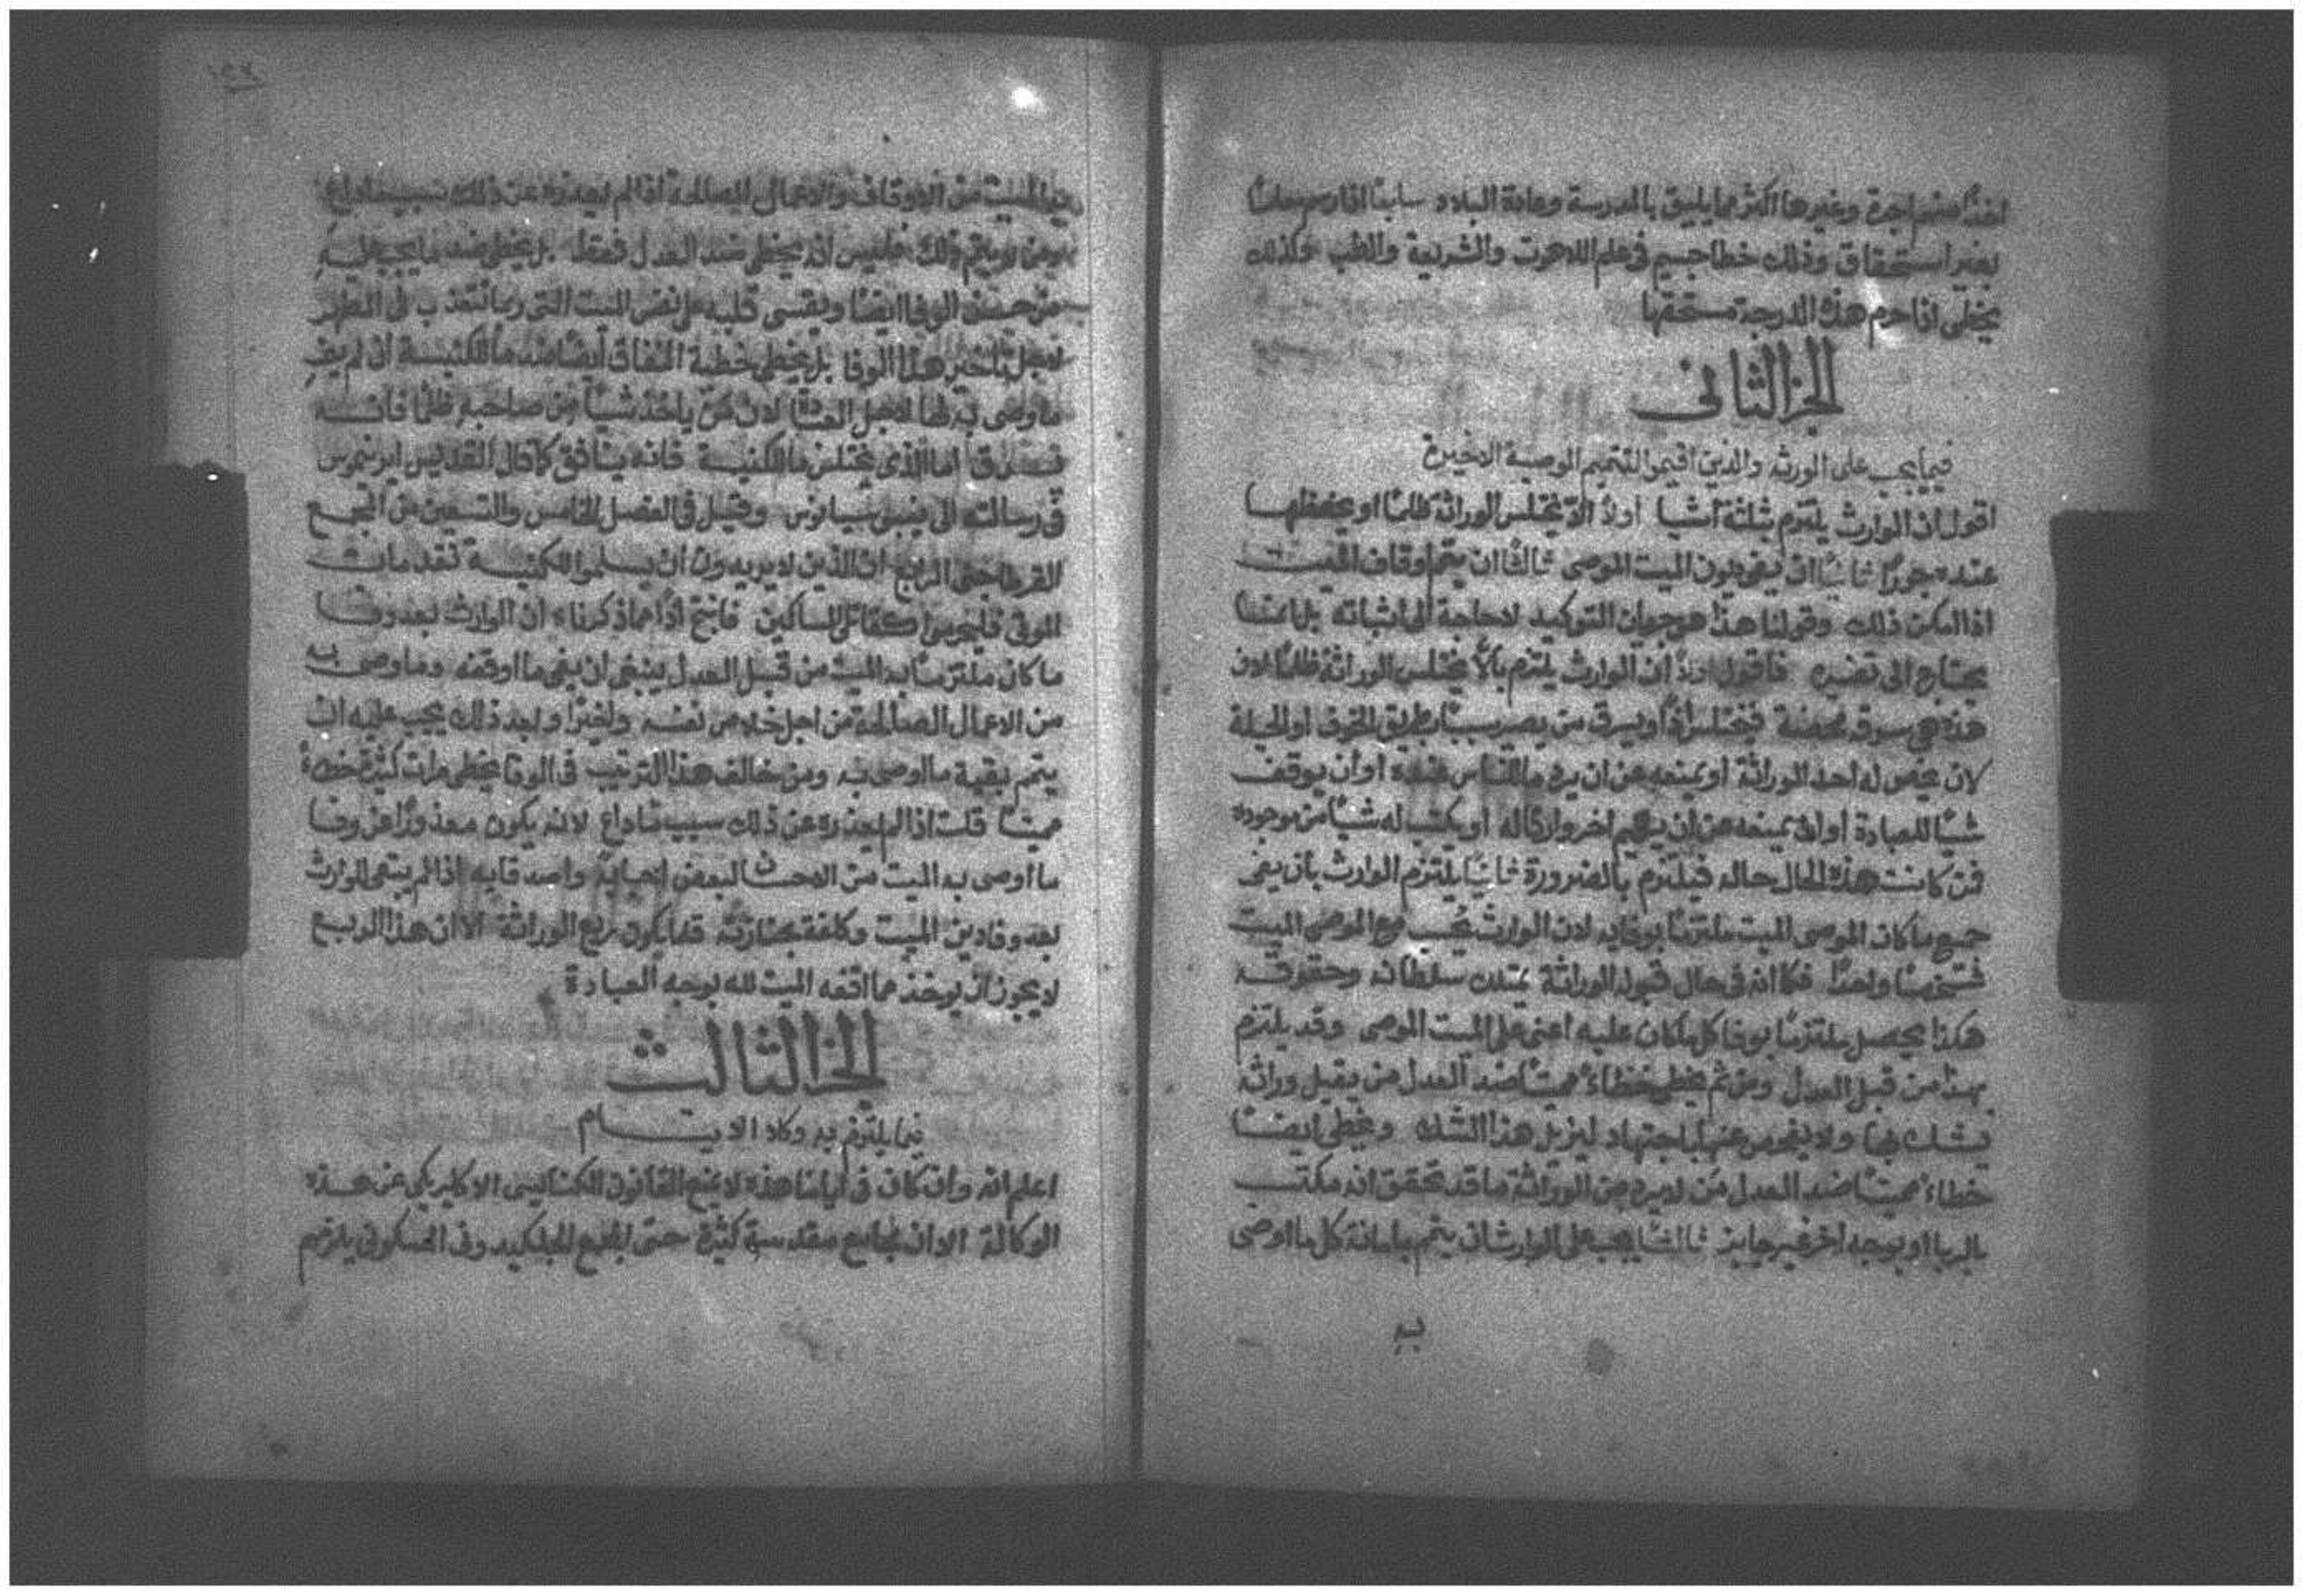 اخذًا منهم اجرة وغيرها اكثر مما يليق بالمدرسة وعادة البلاد سابعًا اذا رسم معلمًا
بغير استحقاق وذلك خطا جسيم في علم اللاهوت والشريعة والطب وكذلك
يخطي اذا حرم هذه الدرجة مستحقها
الجز الثاني
فيما يجب على الورثه والذين اقيموا لتتميم الوصية الاخيرة
اقول ان الوارث يلتزم بثلثة اشيا اولًا الّا يختلس الوراثة ظلمًا او يحفظها
عنده جورًا ثانيًا ان يفي ديون الميت الموصى ثالثًا ان يتم اوقاف الميت
اذا امكن ذلك وقولنا هذا هو جوان التوكيد لا حاجة الى اثباته بل انما
يحتاج الى تفسير فاقول اولًا ان الوارث يلتزم بالّا يختلس الوراثة ظلمًا لان
هذه هي سرقة محضة فيختلس اذًا ويسرق من يصير سببًا بطريق الخوف او الحيلة
لان يخص له احد الوراثة او يمنعه عن ان يرد ما للناس عنده او أن يوقف
شيًا للعبادة او ان يمنعه عن ان يقيم اخر وارثًا له او يكتب له شيًا من موجوده
فمن كانت هذه الحال حاله فيلتزم بالضرورة ثانيًا يلتزم الوارث بان يفى
جميع ما كان الموصى الميت ملتزمًا بوفايه لان الوارث يحسب مع الموصى الميت
شخصًا واحدًا فكما انه فى حال قبوله الوراثة يمتلك سلطانه وحقوقه
هكذا يحصل ملتزمًا بوفا كل ما كان عليه اعنى على الميت الموصى وقد يلتزم
بهذا من قبل العدل ومن ثم يخطى خطاءً مميتًا ضد العدل من يقبل وراثة
يشك بها ولا يفحص عنها باجتهاد ليزيل هذا الشك ويخطى ايضًا
خطاءً مميتًا ضد العدل من لا يرد من الوراثة ما قد تحقق انه مكتسب
بالربا او بوجه اخر غير جايز ثالثًا يجب على الوارث ان يتم بامانة كل ما اوصى
به
به الميت من الاوقاف والاعمال الصالحة اذا لم يعذره عن ذلك سبب ما داع
ومن لم يتم ذلك فليس انه يخطى ضد العدل فقط بل يخطى ضد ما يجب عليه
من حسن الوفا ايضًا ويقسى قلبه على نفس الميت التى ربما تتعذب فى المطهر
لاجل تاخير هذا الوفا بل يخطى خطية النفاق ايضًا ضد ما للكنيسة ان لم يفِ
ما وصى به لها لاجل لان من ياخذ شيًا من صاحبه ظلمًا فانه
فسرق اما الذى يختلس ما للكنيسة فانه ينافق كما قال القديس ايرنيموس
فى رسالته الى نيبوتسيانوس وقيل فى الفصل الخامس والتسعين من المجمع
القرطاجنى الرابع ان الذين لا يريدون ان يسلموا للكنيسة تقدمات
الموتى فليحرموا كقتالى المساكين فانتج اذًا مما ذكرناه ان الوارث بعد وفا
ما كان ملتزمًا به الميت من قبل العدل ينبغى ان يفى ما اوقفه وما وصى به
من الاعمال الصالحة من اجل خلاص نفسه واخيرًا وبعد ذلك يجب عليه ان
يتمم بقية ما اوصى به ومن خالف هذا الترتيب فى الوفا يخطى مرات كثيرة خطاءً
مميتًا قلت اذا لم يعذره عن ذلك سبب ما داع لانه يكون معذورًا عن وفا
ما اوصى به الميت من الاحسان لبعض احبايه واصدقايه اذا لم يبقى للوارث
بعد وفا دين الميت وكلفة بجنازته قدر ما يكون ربع الوراثة الا ان هذا الربع
لا يجوز ان يوخذ مما اوقفه الميت لله بوجه العبادة
الجز الثالث
فيما يلتزم به وكلا الايتام
اعلم انه وان كان فى ايامنا هذه لا يمنع القانون الكنايسى الاكليريكى عن هذه
الوكالة الا ان مجامع مقدسة كثيرة حتى المجمع الخلكيدونى المسكونى يلزمهم